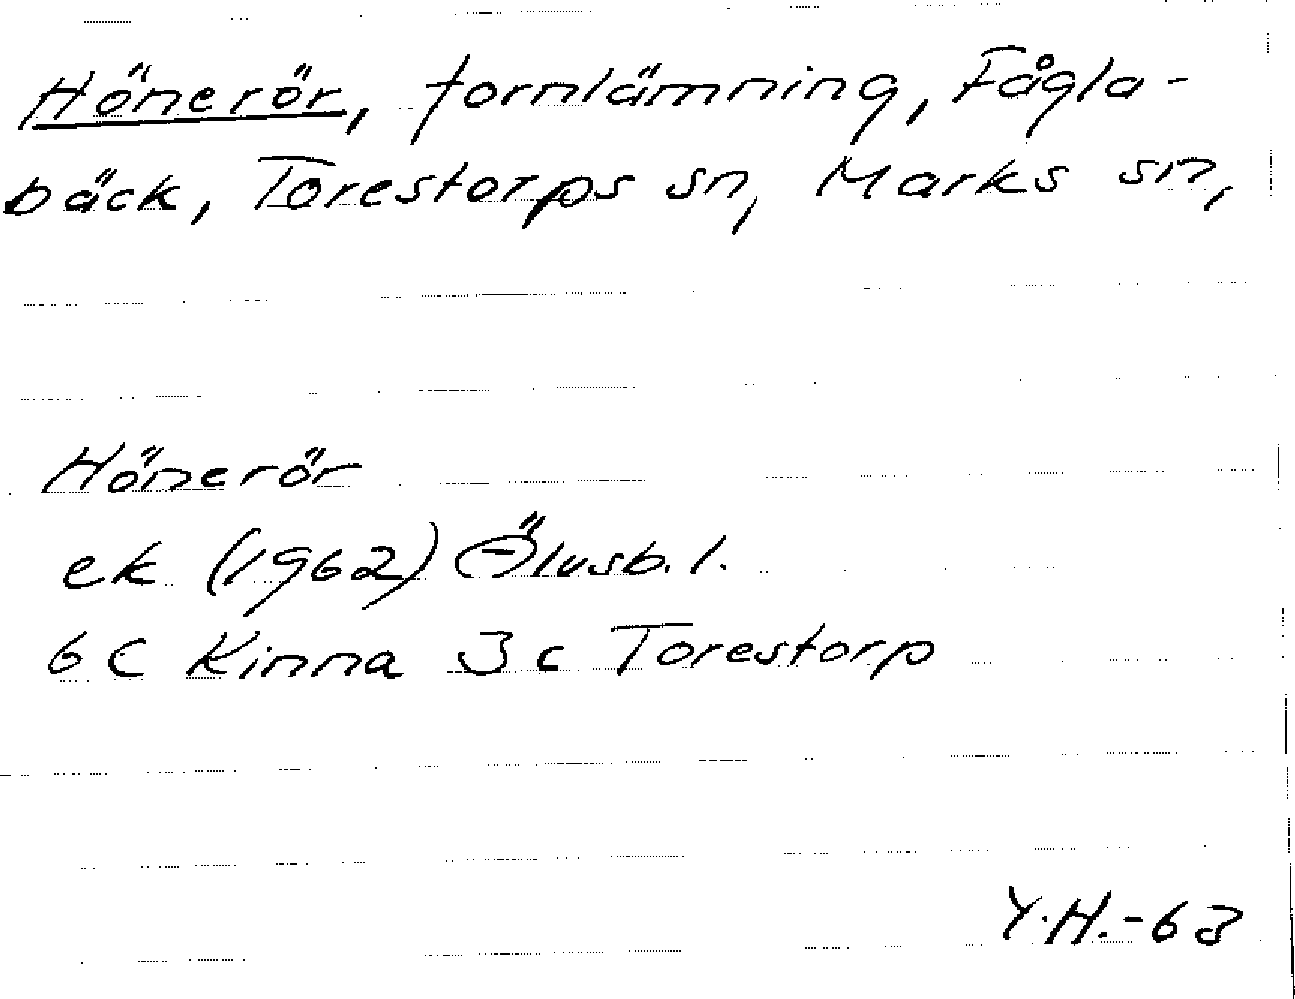 Hönerör, fornlämning, Fågla-
bäck, Torestorps sn, Marks sn,
Hönerör
ek (1962) Älvsb. l.
6 C Kinna 3 c Torestorp
Y.H.-63